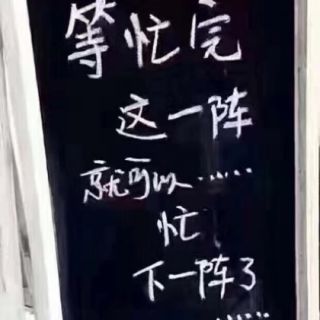 等忙完
这一阵
就可以......
忙
下一阵了
......